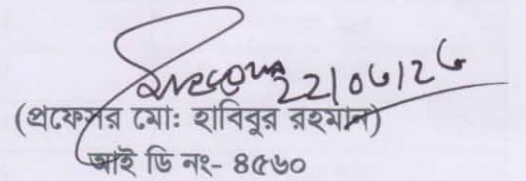 22/06/26
(প্রফেসর মো: হাবিবুর রহমান)
আই ডি নং- ৪৫৬০